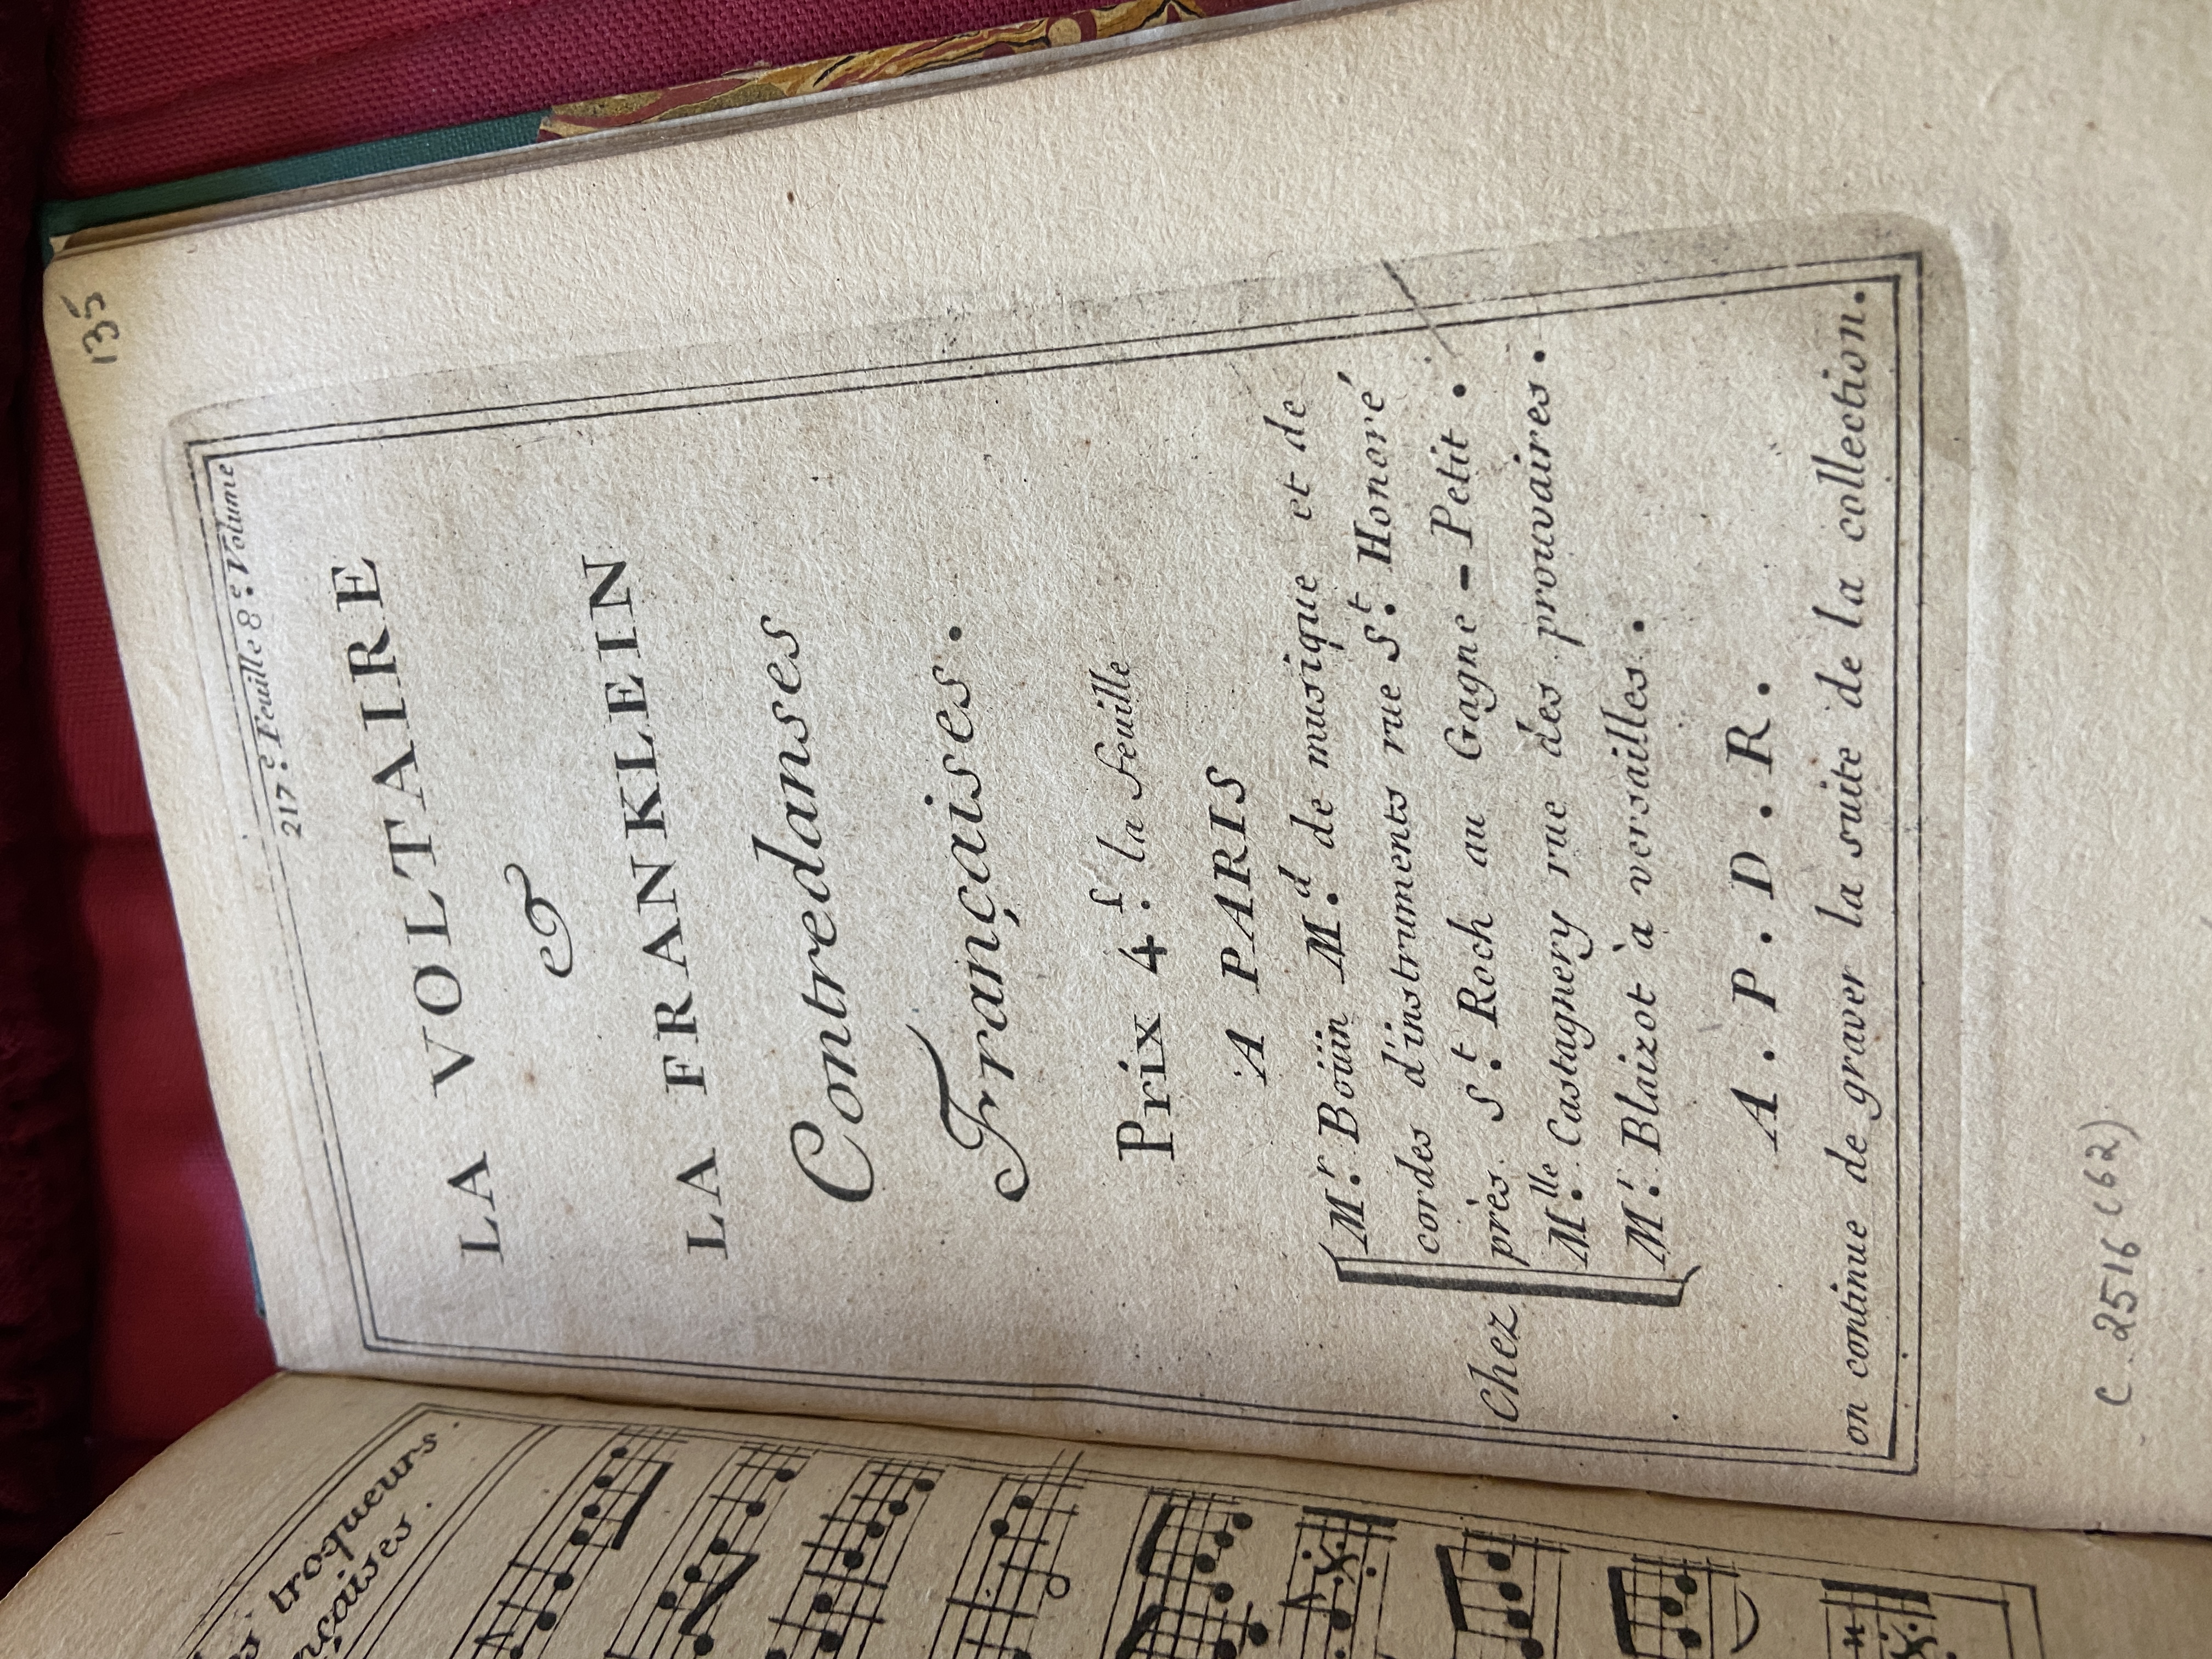 135
217.e Feuille 8.e Volume
LA VOLTAIRE
&
LA FRANKLEIN
Contredanses
Françaises.
Prix 4.f la feuille
A PARIS
Chez
M.r Boüin M.d de musique et de
cordes d'instruments rue S.t Honoré
près S.t Roch au Gagne-Petit.
M.lle Castagnery rue des prouvaires.
M.r Blaizot à versailles.
A.P.D.R.
on continue de graver la suite de la collection.
C. 2516 (62)
troqueurs.